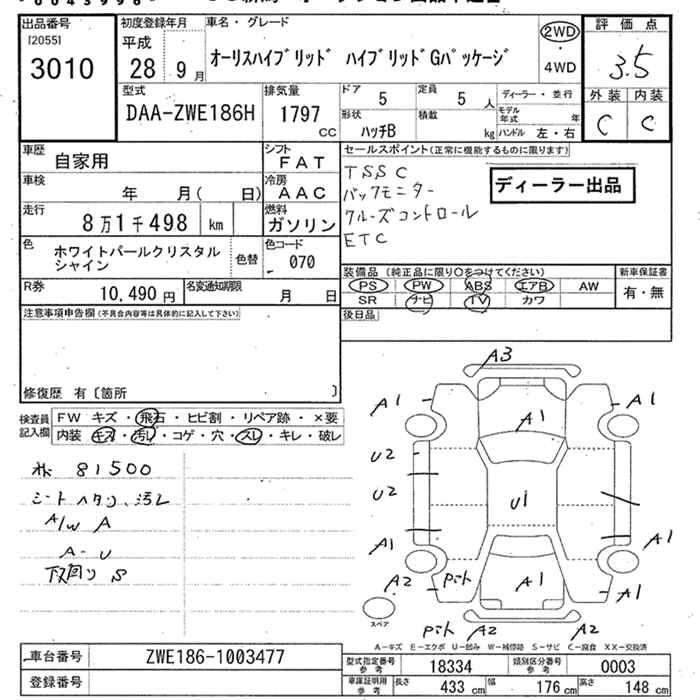 出品番号
[2055]
3010
初度登録年月
平成
28 9月
車名・グレード
オーリスハイブリッド ハイブリッドGパッケージ
2WD
・
4WD
評価点
3.5
外装 内装
C C
型式
DAA-ZWE186H
排気量
1797
CC
ドア 5
定員 5人
ディーラー・並行
モデル年式 年
形状 ハッチB
積載 kg
ハンドル 左・右
車歴
自家用
シフト
FAT
車検
年 月( 日)
冷房
AAC
走行
8万1千498 km
燃料
ガソリン
色
ホワイトパールクリスタルシャイン
色替
色コード
070
R券
10,490円
名変通知期限
月 日
セールスポイント(正常に機能するものに限ります)
TSSC
バックモニター
クルーズコントロール
ETC
ディーラー出品
装備品(純正品に限り○をつけてください)
新車保証書
PS PW ABS エアB AW
SR ナビ TV カワ
有・無
後日品
注意事項申告欄(不具合内容等は具体的に記入して下さい)
修復歴 有〔箇所 〕
検査員記入欄
FW キズ・飛石・ヒビ割・リペア跡・×要
内装 キズ・汚レ・コゲ・穴・スレ・キレ・破レ
81500
シートヘタリ、汚レ
A/W A
A-U
下回りS
A3
A1 A1 A1
U2
U2
U1
A1 A1
A2 A1 A1
A2 A2
スペア
A-キズ E-エクボ U-凹み W-補修跡 S-サビ C-腐食 XX-交換済
車台番号
ZWE186-1003477
登録番号
型式指定番号参考
18334
類別区分番号参考
0003
車庫証明用参考
長さ 433cm
幅 176cm
高さ 148cm